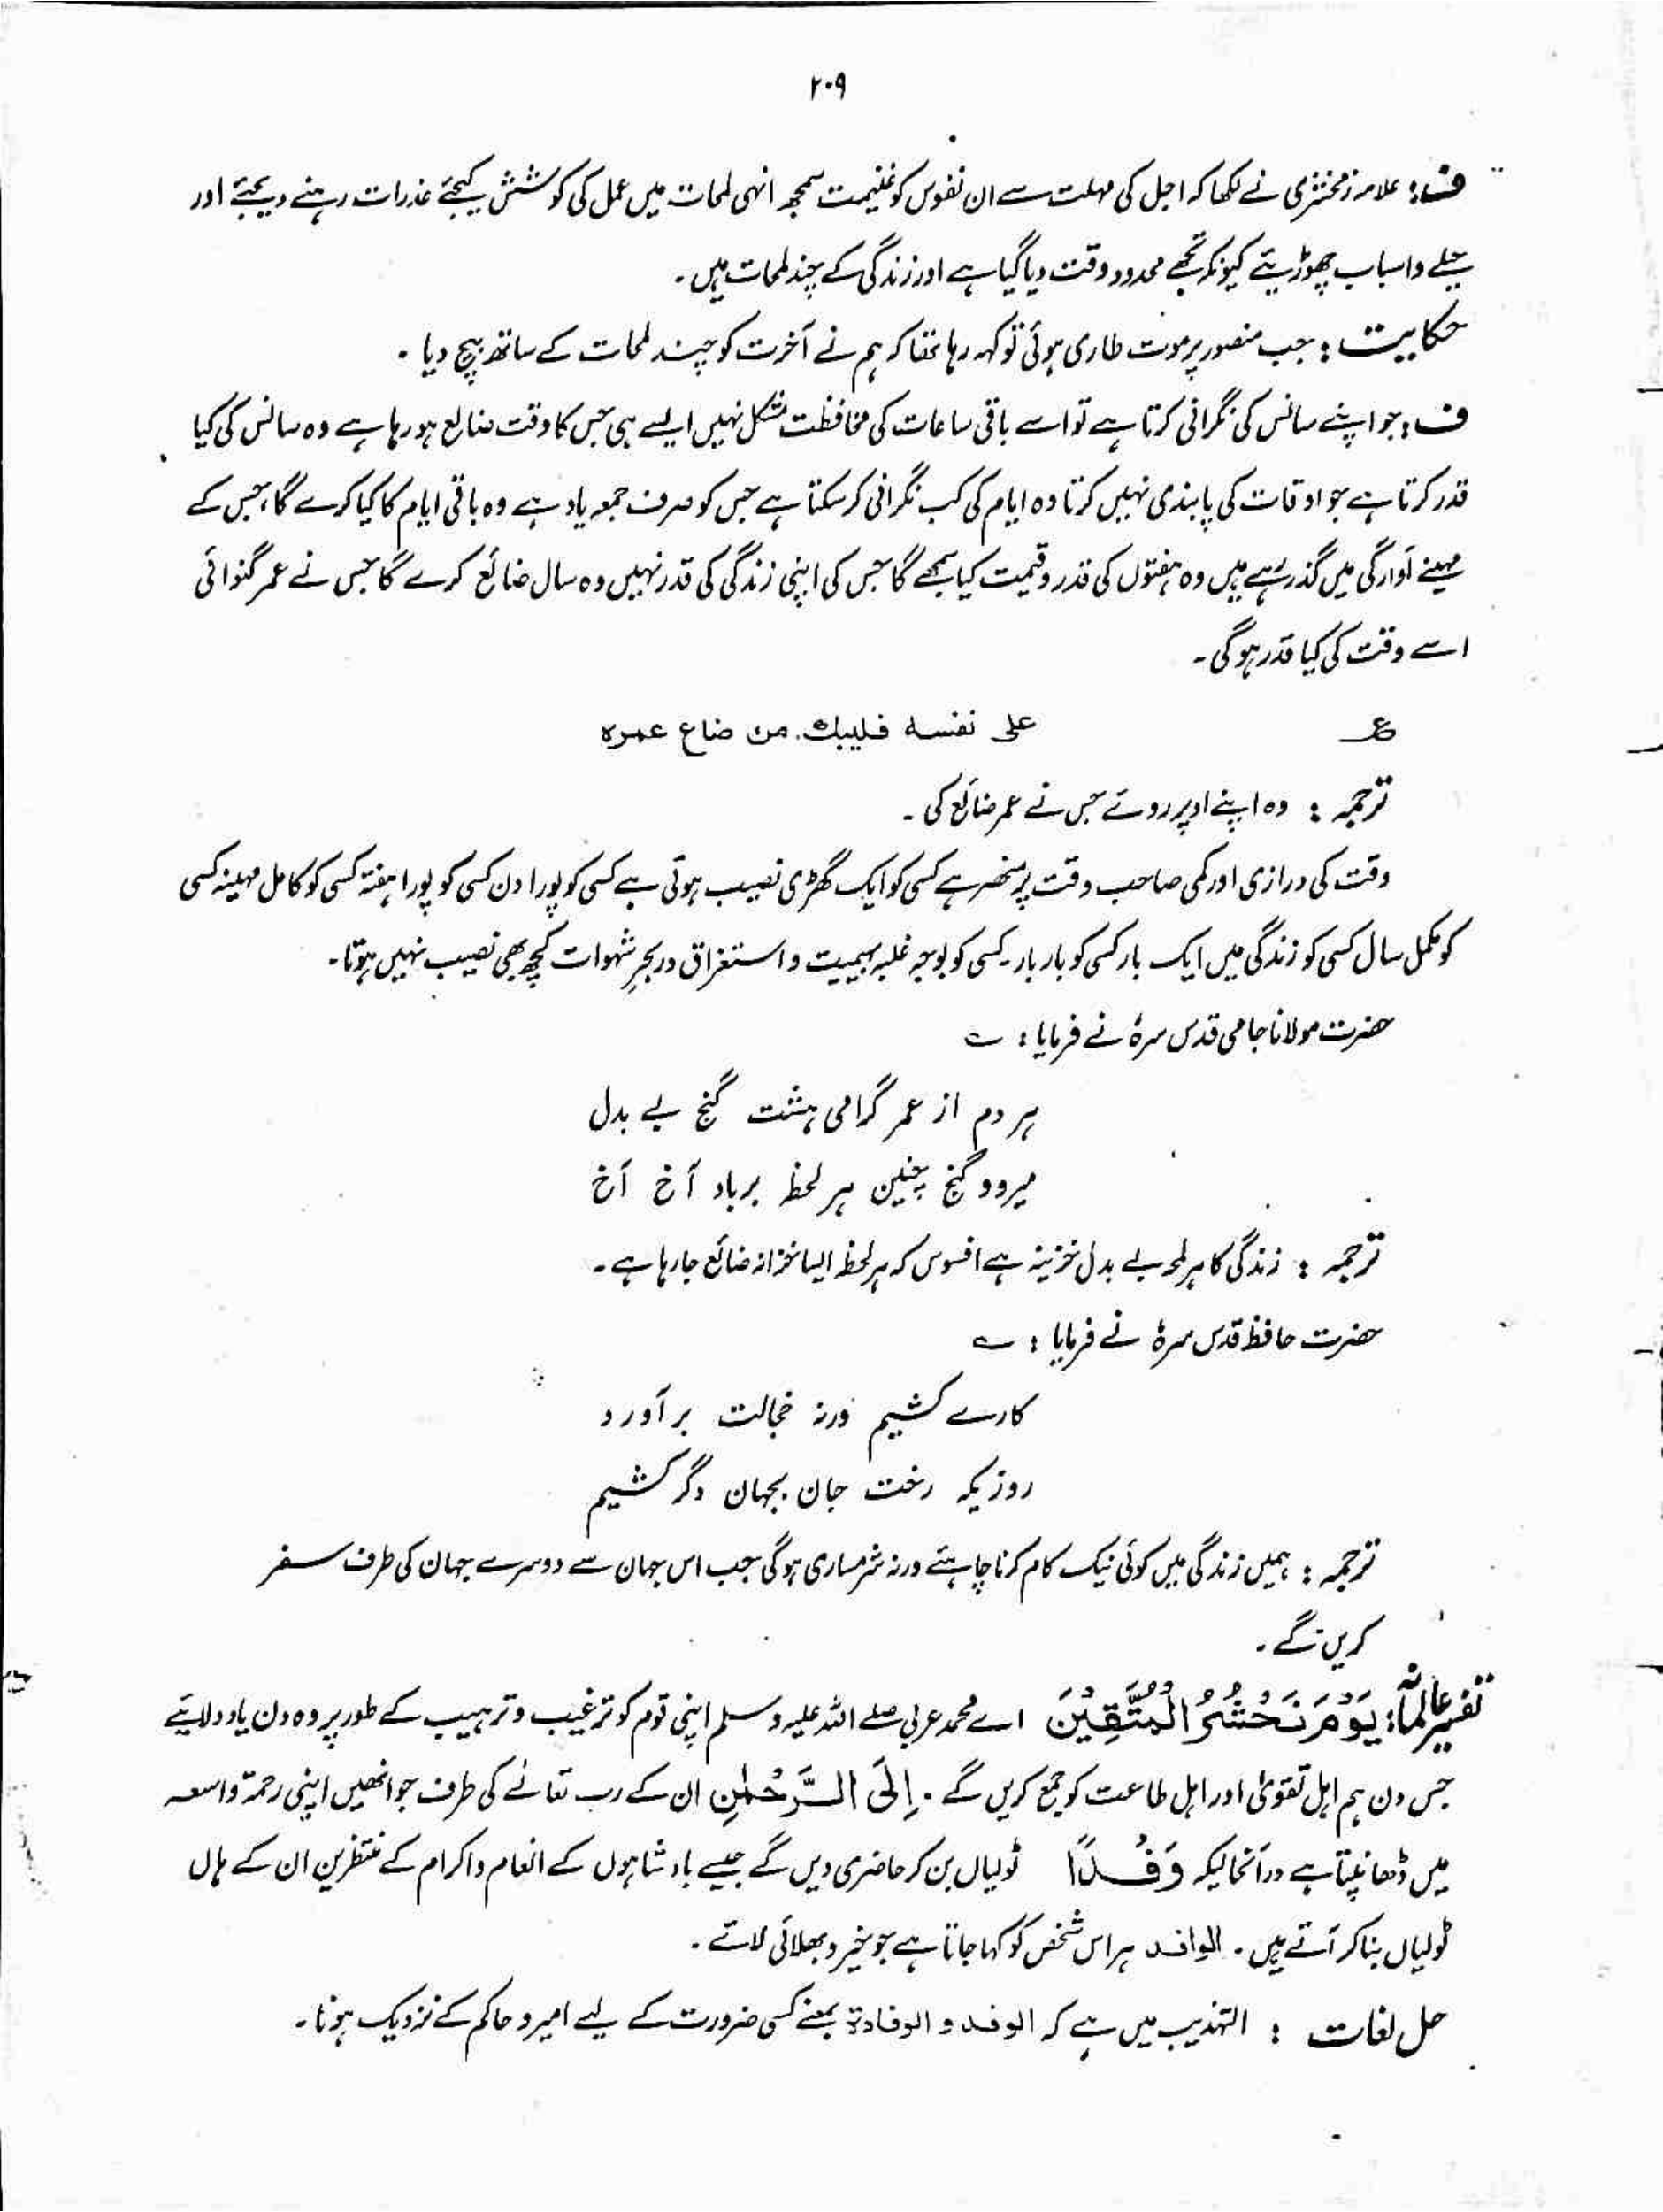 ۲۰۹
ف: علامہ زمخشری نے لکھا کہ اجل کی مہلت سے ان نفوس کو غنیمت سمجھ انہی لمحات میں عمل کی کوشش کیجئے عذرات رہنے دیجئے اور
حیلے و اسباب چھوڑیئے کیونکہ تجھے محدود وقت دیا گیا ہے اور زندگی کے چند لمحات ہیں۔
حکایت: جب منصور پر موت طاری ہوئی تو کہہ رہا تھا کہ ہم نے آخرت کو چند لمحات کے ساتھ بیچ دیا۔
ف: جو اپنے سانس کی نگرانی کرتا ہے تو اسے باقی ساعات کی محافظت مشکل نہیں ایسے ہی جس کا وقت ضائع ہو رہا ہے وہ سانس کی کیا
قدر کرتا ہے جو اوقات کی پابندی نہیں کرتا وہ ایام کی کب نگرانی کر سکتا ہے جس کو صرف جمعہ یاد ہے وہ باقی ایام کا کیا کرے گا، جس کے
مہینے آوارگی میں گذر رہے ہیں وہ ہفتوں کی قدر و قیمت کیا سمجھے گا جس کی اپنی زندگی کی قدر نہیں وہ سال ضائع کرے گا جس نے عمر گنوائی
اسے وقت کی کیا قدر ہو گی۔
ع علی نفسه فلیبك من ضاع عمرہ
ترجمہ: وہ اپنے اوپر روئے جس نے عمر ضائع کی۔
وقت کی درازی اور کمی صاحب وقت پر منحصر ہے کسی کو ایک گھڑی نصیب ہوتی ہے کسی کو پورا دن کسی کو پورا ہفتہ کسی کو کامل مہینہ کسی
کو مکمل سال کسی کو زندگی میں ایک بار کسی کو بار بار۔ کسی کو بوجہ غلبہ بہیمیت و استغراق در بحرِ شہوات کچھ بھی نصیب نہیں ہوتا۔
حضرت مولانا جامی قدس سرہٗ نے فرمایا: ؎
ہر دم از عمر گرامی ہشت گنج بے بدل
میرود گنج چنین ہر لحظ برباد آخ آخ
ترجمہ: زندگی کا ہر لمحہ بے بدل خزینہ ہے افسوس کہ ہر لحظ ایسا خزانہ ضائع جا رہا ہے۔
حضرت حافظ قدس سرہٗ نے فرمایا: ؎
کارے کشیم ورنہ خجالت بر آورد
روزیکہ رخت جان بجہان دگر کشیم
ترجمہ: ہمیں زندگی میں کوئی نیک کام کرنا چاہئے ورنہ شرمساری ہو گی جب اس جہان سے دوسرے جہان کی طرف سفر
کریں گے۔
تفسیر عالمانہ: يَوْمَ نَحْشُرُ الْمُتَّقِيْنَ اے محمد عربی صلے اللہ علیہ وسلم اپنی قوم کو ترغیب و ترہیب کے طور پر وہ دن یاد دلایئے
جس دن ہم اہل تقویٰ اور اہل طاعت کو جمع کریں گے۔ اِلَى الرَّحْمٰنِ ان کے رب تعالےٰ کی طرف جو انھیں اپنی رحمۃ واسعہ
میں ڈھانپتا ہے درآنحالیکہ وَفْدًا ٹولیاں بن کر حاضری دیں گے جیسے بادشاہوں کے انعام و اکرام کے منتظرین ان کے ہاں
ٹولیاں بنا کر آتے ہیں۔ الوافد ہر اس شخص کو کہا جاتا ہے جو خیر و بھلائی لائے۔
حل لغات: التہذیب میں ہے کہ الوفد و الوفادۃ بمعنے کسی ضرورت کے لیے امیر و حاکم کے نزدیک ہونا۔